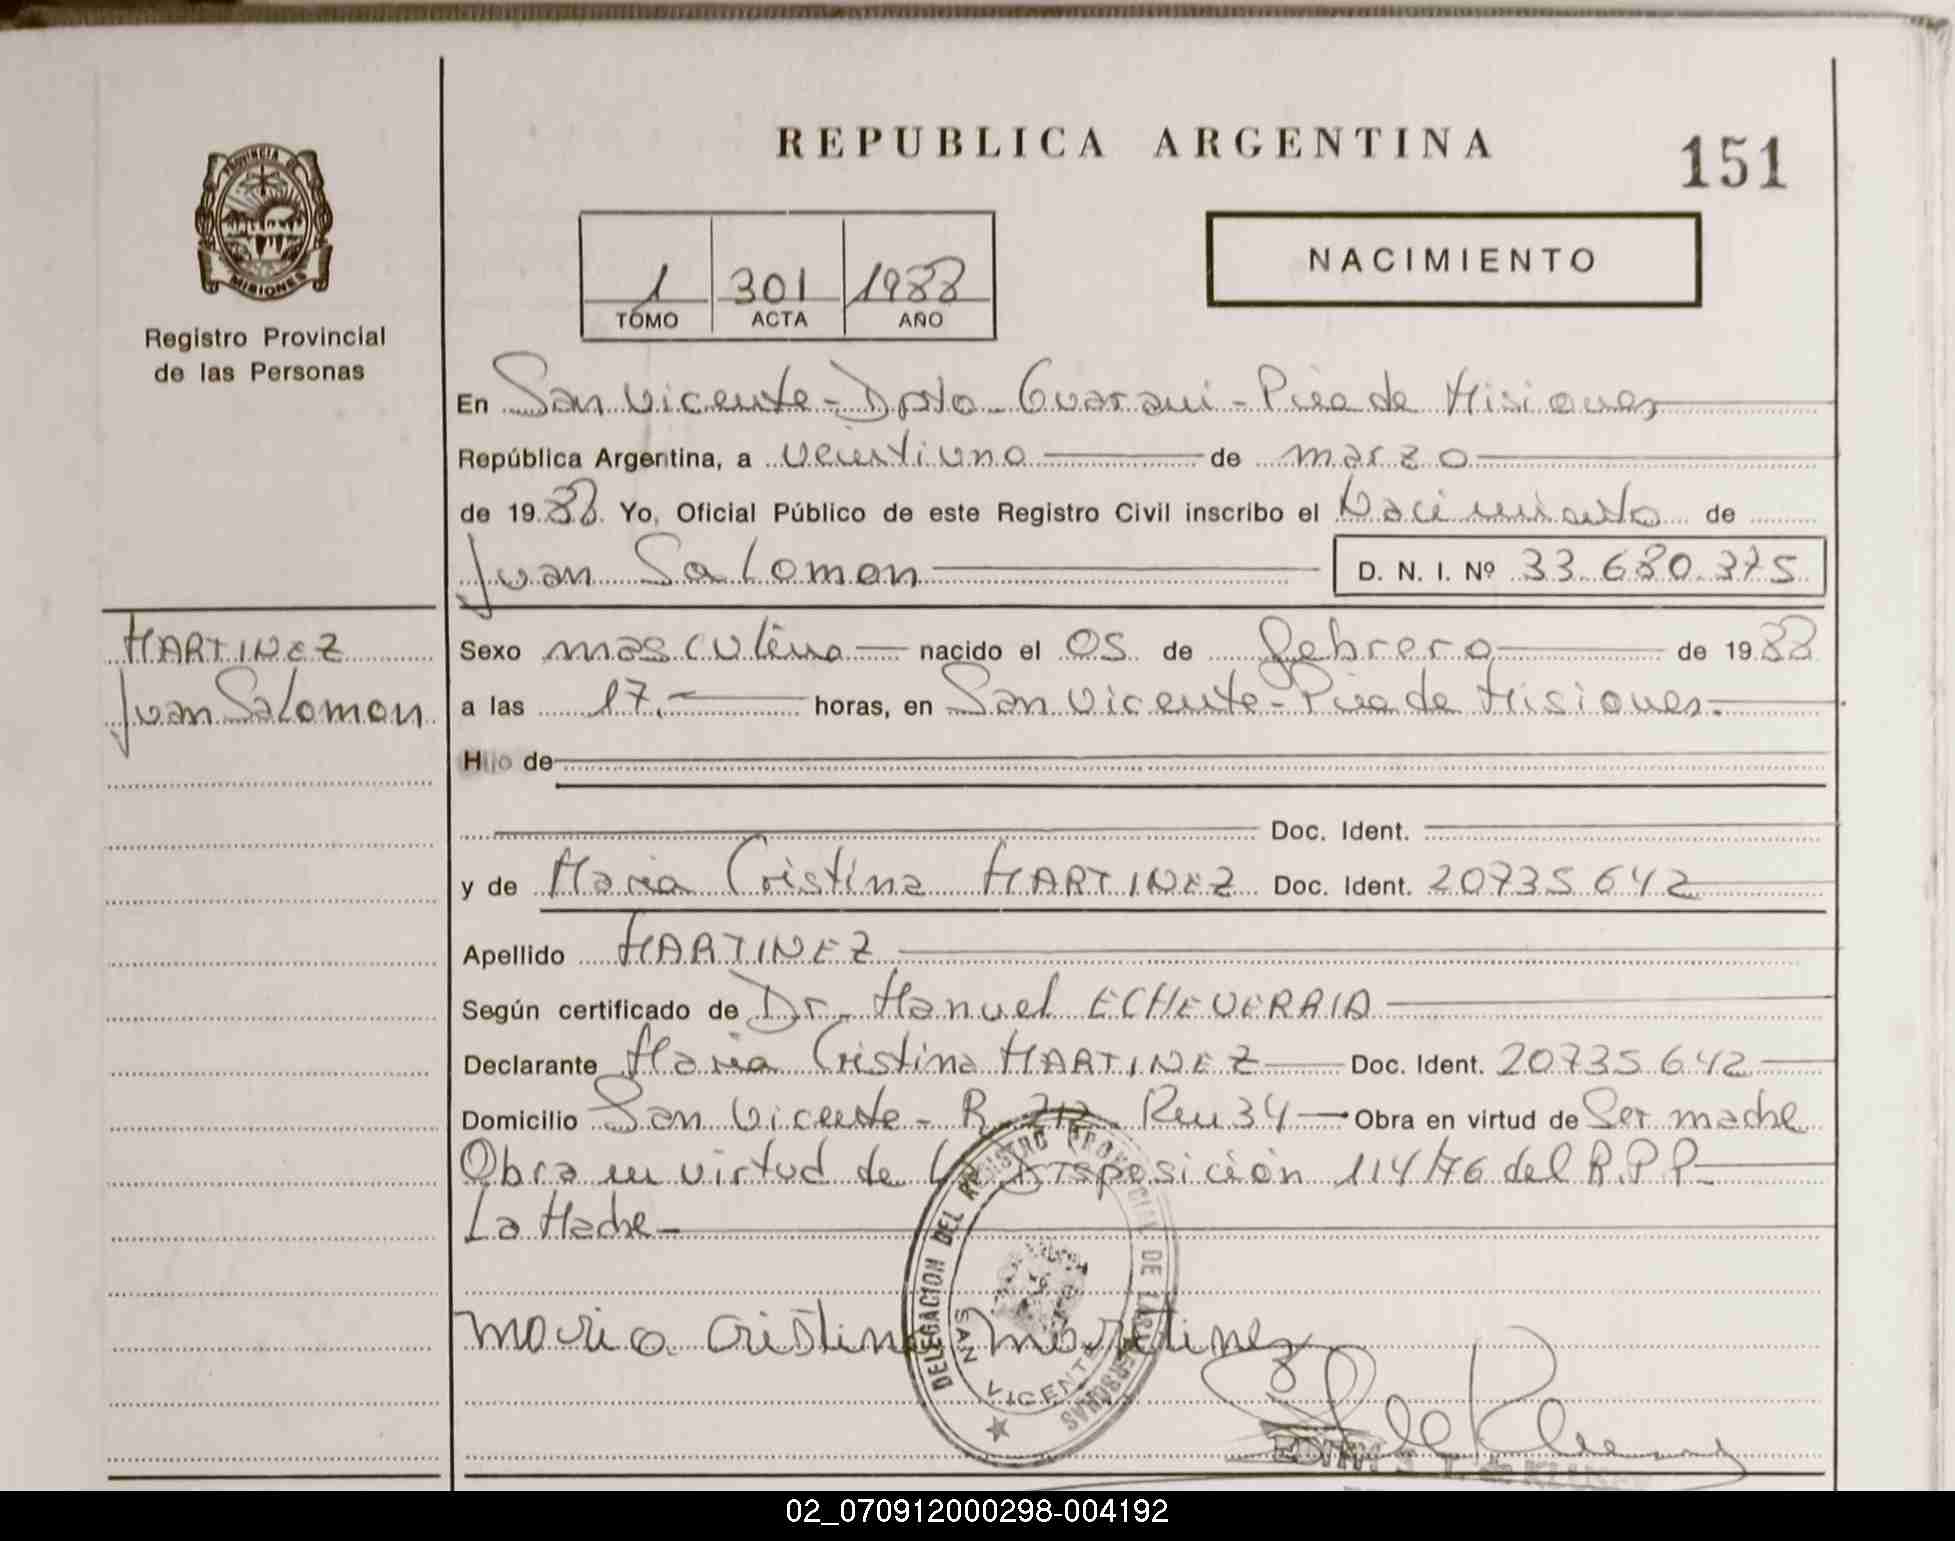 REPUBLICA ARGENTINA
151
PROVINCIA DE
MISIONES
Registro Provincial
de las Personas
1 301 1988
TOMO ACTA AÑO
NACIMIENTO
En San Vicente - Dpto - Guarani - Pcia de Misiones
República Argentina, a veintiuno de marzo
de 1988 Yo, Oficial Público de este Registro Civil inscribo el Nacimiento de
Juan Salomon D. N. I. Nº 33.680.375
MARTINEZ
Juan Salomon
Sexo masculino nacido el 05 de febrero de 1988
a las 17.- horas, en San Vicente - Pcia de Misiones.
Hijo de
Doc. Ident.
y de Maria Cristina MARTINEZ Doc. Ident. 20735642
Apellido MARTINEZ
Según certificado de Dr. Manuel ECHEVERRIA
Declarante Maria Cristina MARTINEZ Doc. Ident. 20735642
Domicilio San Vicente - R. 212 - Km 34 Obra en virtud de Ser madre
Obra en virtud de la Disposición 114/76 del R.P.P.
La Madre -
Maria Cristina Martinez
DELEGACION DEL REGISTRO PROVINCIAL DE LAS PERSONAS
SAN VICENTE
EDITH S. T. de
02_070912000298-004192